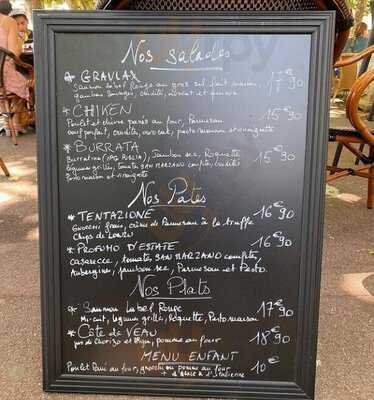 Nos Salades
* GRAVLAX 17€90
Saumon Label Rouge au gros sel fait maison,
crudité, et quinoa
* CHIKEN 15€90
Poulet et chèvre panés au four, Parmesan
oeuf parfait, crudités, avocat, pesto maison et vinaigrette
* BURRATA 15€90
Burratina (IPG PUGLIA), Jambon sec, Roquette
légumes grillés, tomate SAN MARZANO confites
Pesto maison et vinaigrette
Nos Pates
* TENTAZIONE 16€90
GNOCCHI frais, crème de Parmesan à la truffe
Chips de LONZU
* PROFUMO D'ESTATE 16€90
CASARECCE, tomate SAN MARZANO confites,
Aubergine, jambon sec, Parmesan et Pesto.
Nos Plats
* Saumon Label Rouge 17€90
Mi-cuit, légumes grillés, Roquette, Pesto maison
* Côte de VEAU 18€90
jus de Chorizo et thym, pomme au four
MENU ENFANT 10€
Poulet Pané au four, gnocchi ou pomme au four
+ d'Italienne